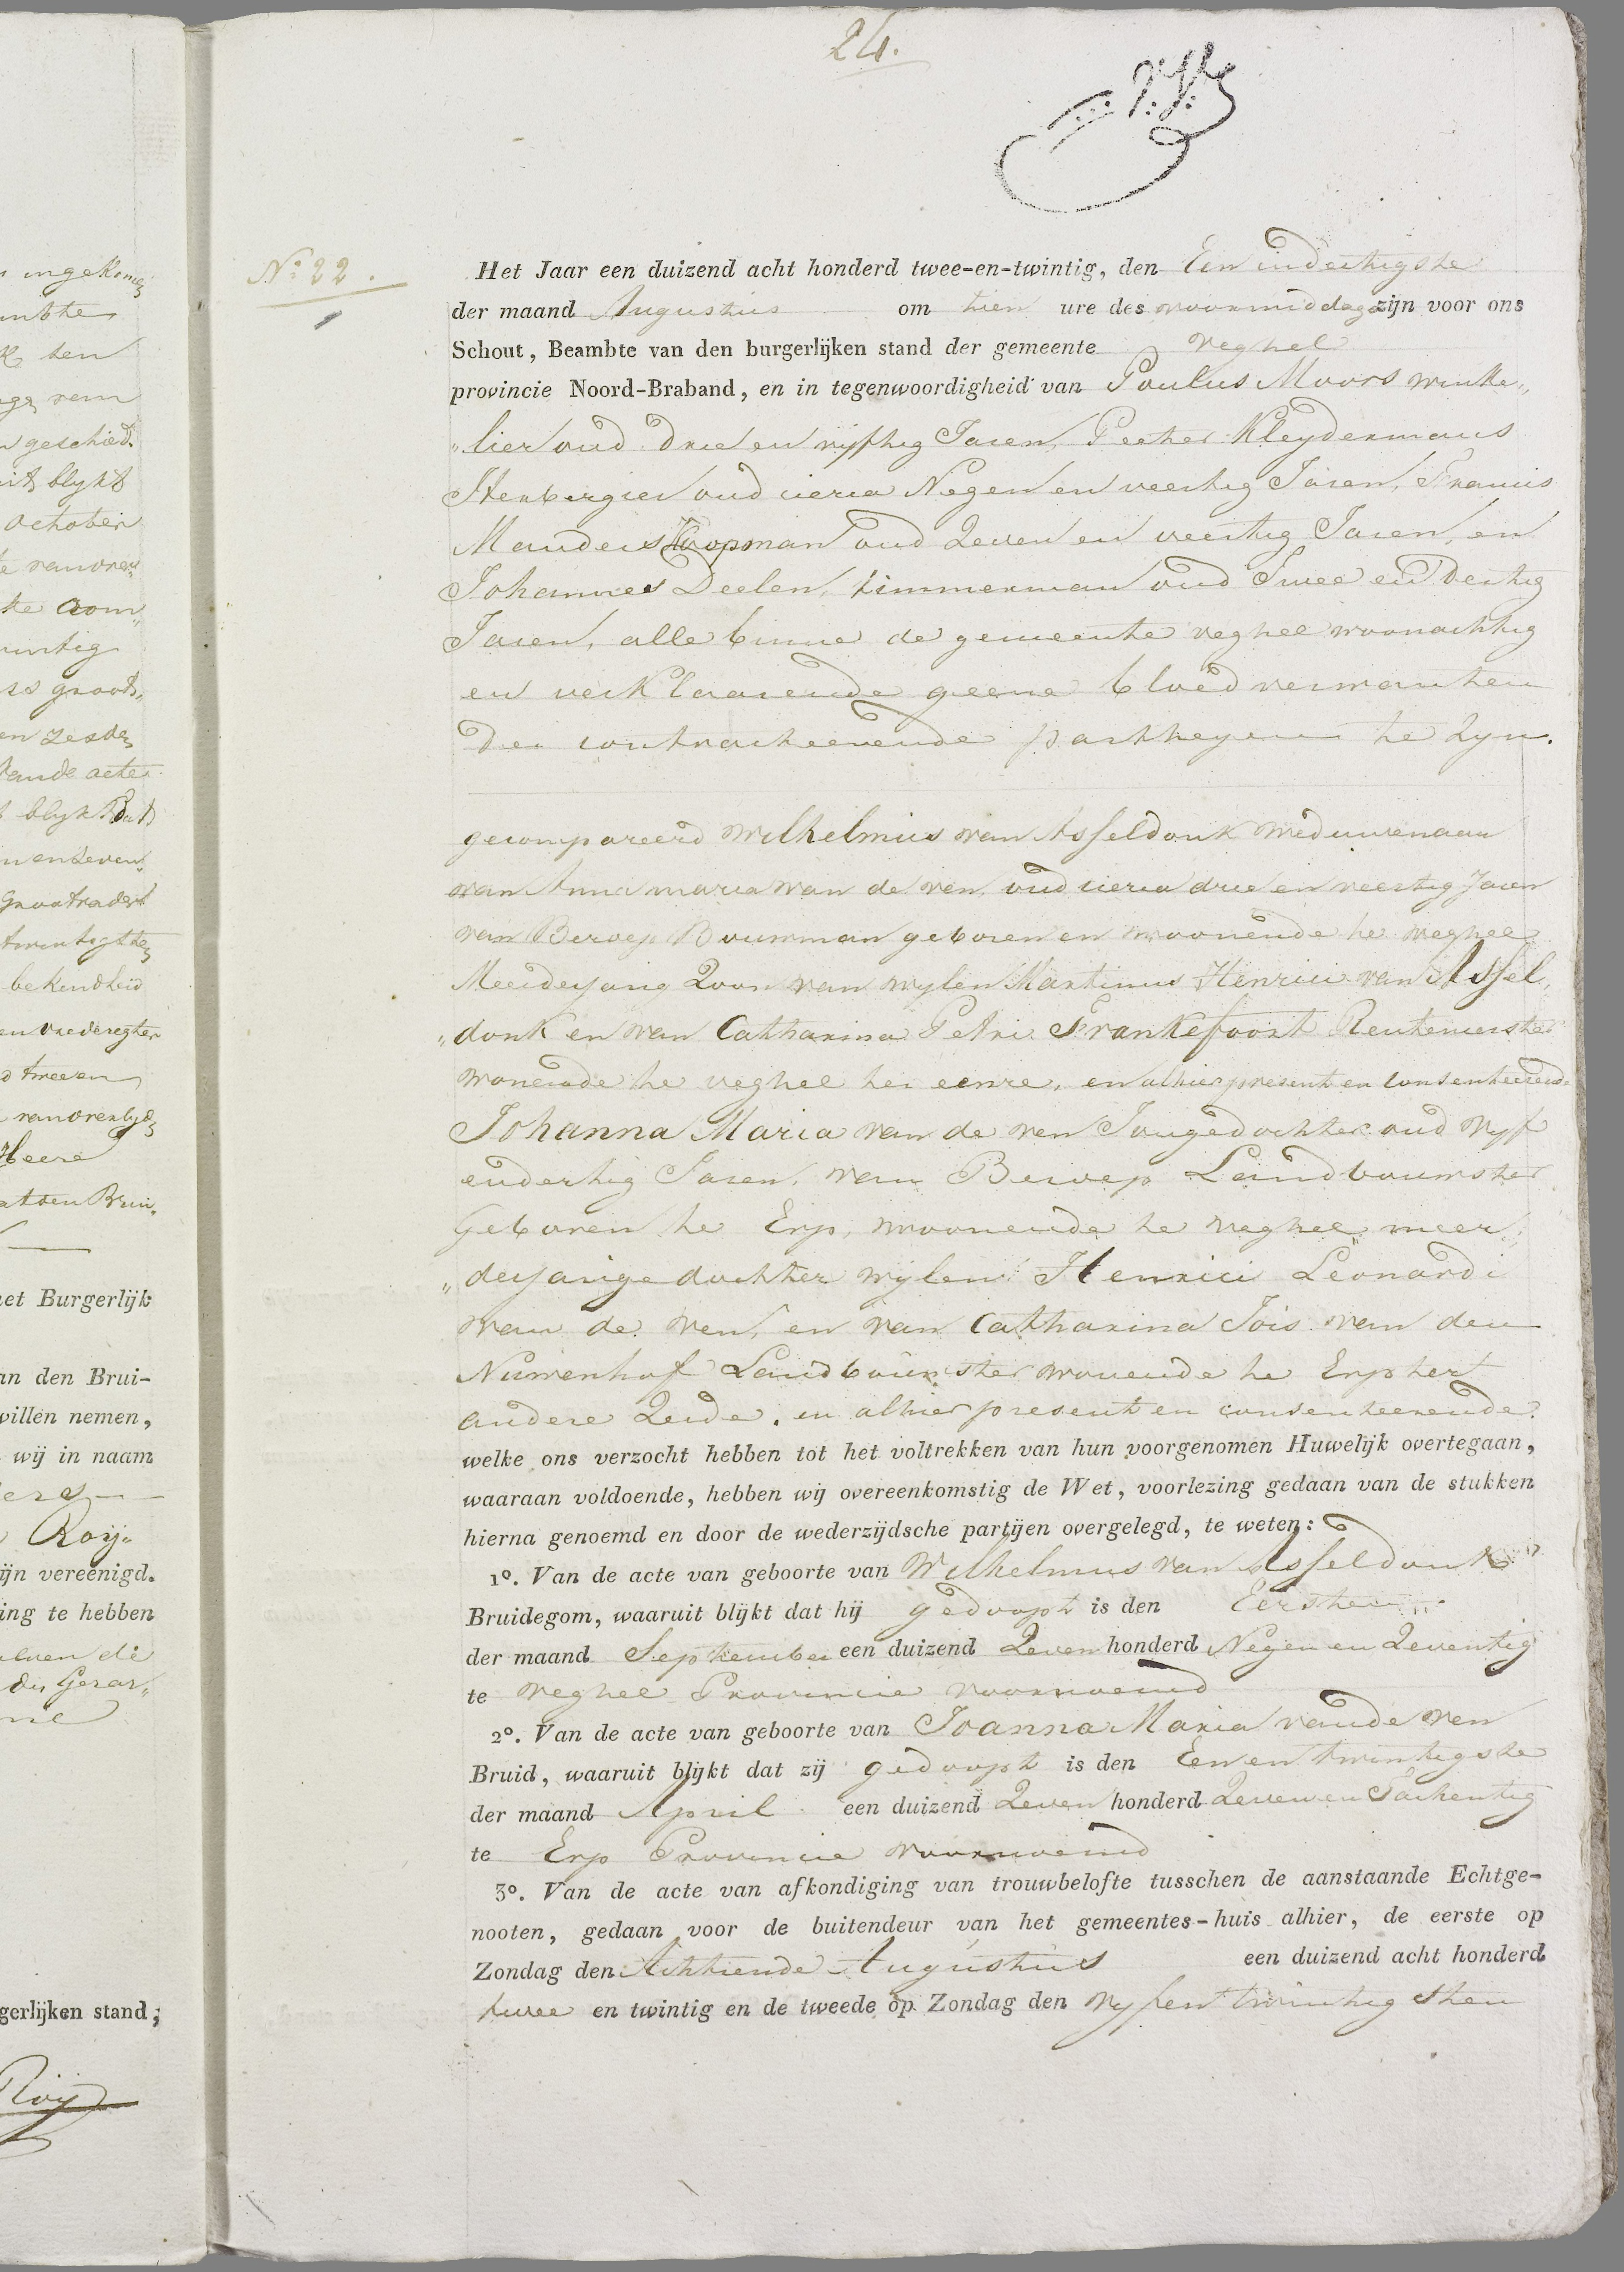 24.
N.º 22.
Het Jaar een duizend acht honderd twee-en-twintig, den Een endertigste
der maand Augustus om tien ure des voormiddags zijn voor ons
Schout, Beambte van den burgerlijken stand der gemeente Veghel
provincie Noord-Braband, en in tegenwoordigheid van Paulus Moors winke„
„lier oud drie en vyftig Jaren, Peeter Kleydermans
Herbergier oud circa Negen en veertig Jaren, Francis
Manders Koopman oud Zeven en veertig Jaren, en
Johannes Deelen, timmerman oud Twee en dertig
Jaren, alle binne de gemeente veghel woonachtig
en verklaarende geene bloedverwanten
der contracteerende partheyen te zyn.
gecompareerd Wilhelmus van Asseldonk weduwenaar
van Anna maria van de ven, oud circa drie en veertig Jaren
van Beroep Bouwman geboren en woonende te veghel
Meerderjarig Zoon van wylen Martinus Henrici van Assel„
„donk en van Catharina Petri Frankefoort Renteniester
wonende te veghel ter eenre, en alhier present en consenteerende
Johanna Maria van de ven Jongedochter oud vyf
endertig Jaren, van Beroep Landbouwster
Geboren te Erp, woonende te veghel meer„
„derjarige dochter wylen Henrici Leonardi
van de ven, en van Catharina Jois van den
Nuwenhof Landbouwster wonende te Erp ter
andere Zeide, en alhier present en consenteerende.
welke ons verzocht hebben tot het voltrekken van hun voorgenomen Huwelijk overtegaan,
waaraan voldoende, hebben wij overeenkomstig de Wet, voorlezing gedaan van de stukken
hierna genoemd en door de wederzijdsche partijen overgelegd, te weten:
1º. Van de acte van geboorte van Wilhelmus van Asseldonk
Bruidegom, waaruit blijkt dat hij gedoopt is den Eersten
der maand September een duizend Zeven honderd Negen en Zeventig
te Veghel Provincie voornoemd
2º. Van de acte van geboorte van Joanna Maria vande ven
Bruid, waaruit blijkt dat zij gedoopt is den Eenentwintigste
der maand April een duizend Zeven honderd Zeven en Tachentig
te Erp Provincie voornoemd
3º. Van de acte van afkondiging van trouwbelofte tusschen de aanstaande Echtge-
nooten, gedaan voor de buitendeur van het gemeentes-huis alhier, de eerste op
Zondag den Achtiende Augustus een duizend acht honderd
twee en twintig en de tweede op Zondag den vyfentwintigsten
ingekome
ten
geschied.
blykt
October
groot„
zesde
acte
bekendheid
vrederegter
tweeen
Heere
Brui„
het Burgerlijk
an den Brui-
willen nemen,
wij in naam
Roij„
ijn vereenigd.
ing te hebben
gerlijken stand;
Roij